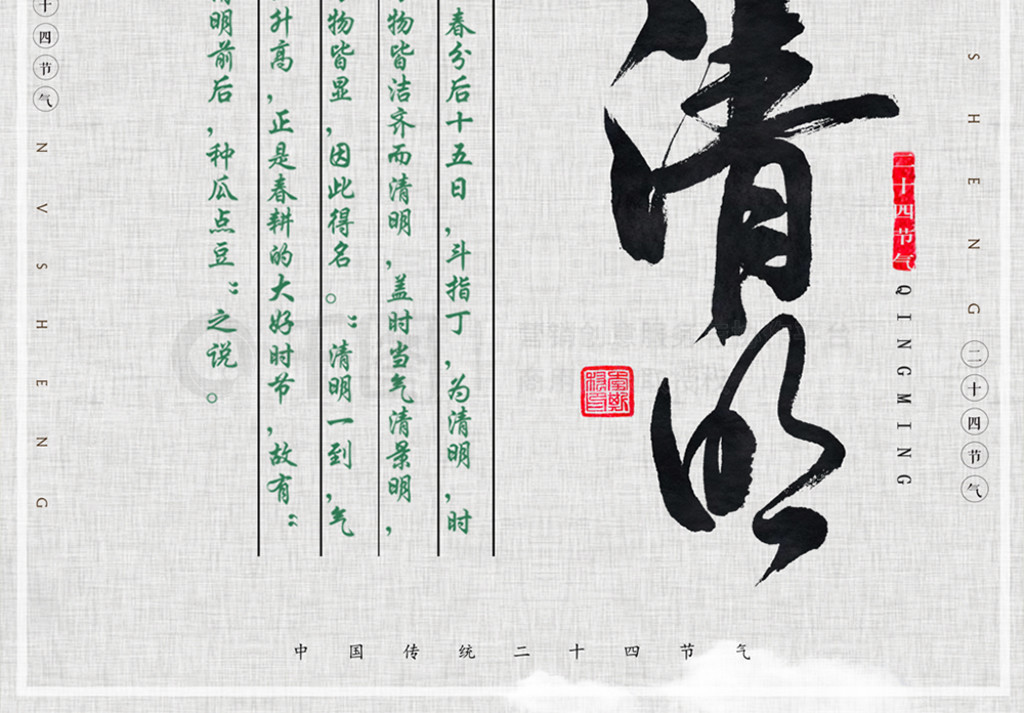 清明
二十四节气
QINGMING
SHENG
二十四节气
春分后十五日,斗指丁,为清明,时
物皆洁齐而清明,盖时当气清景明,
物皆显,因此得名。“清明一到,气
升高,正是春耕的大好时节,故有“
清明前后,种瓜点豆”之说。
十四节气
NVSHENG
中国传统二十四节气